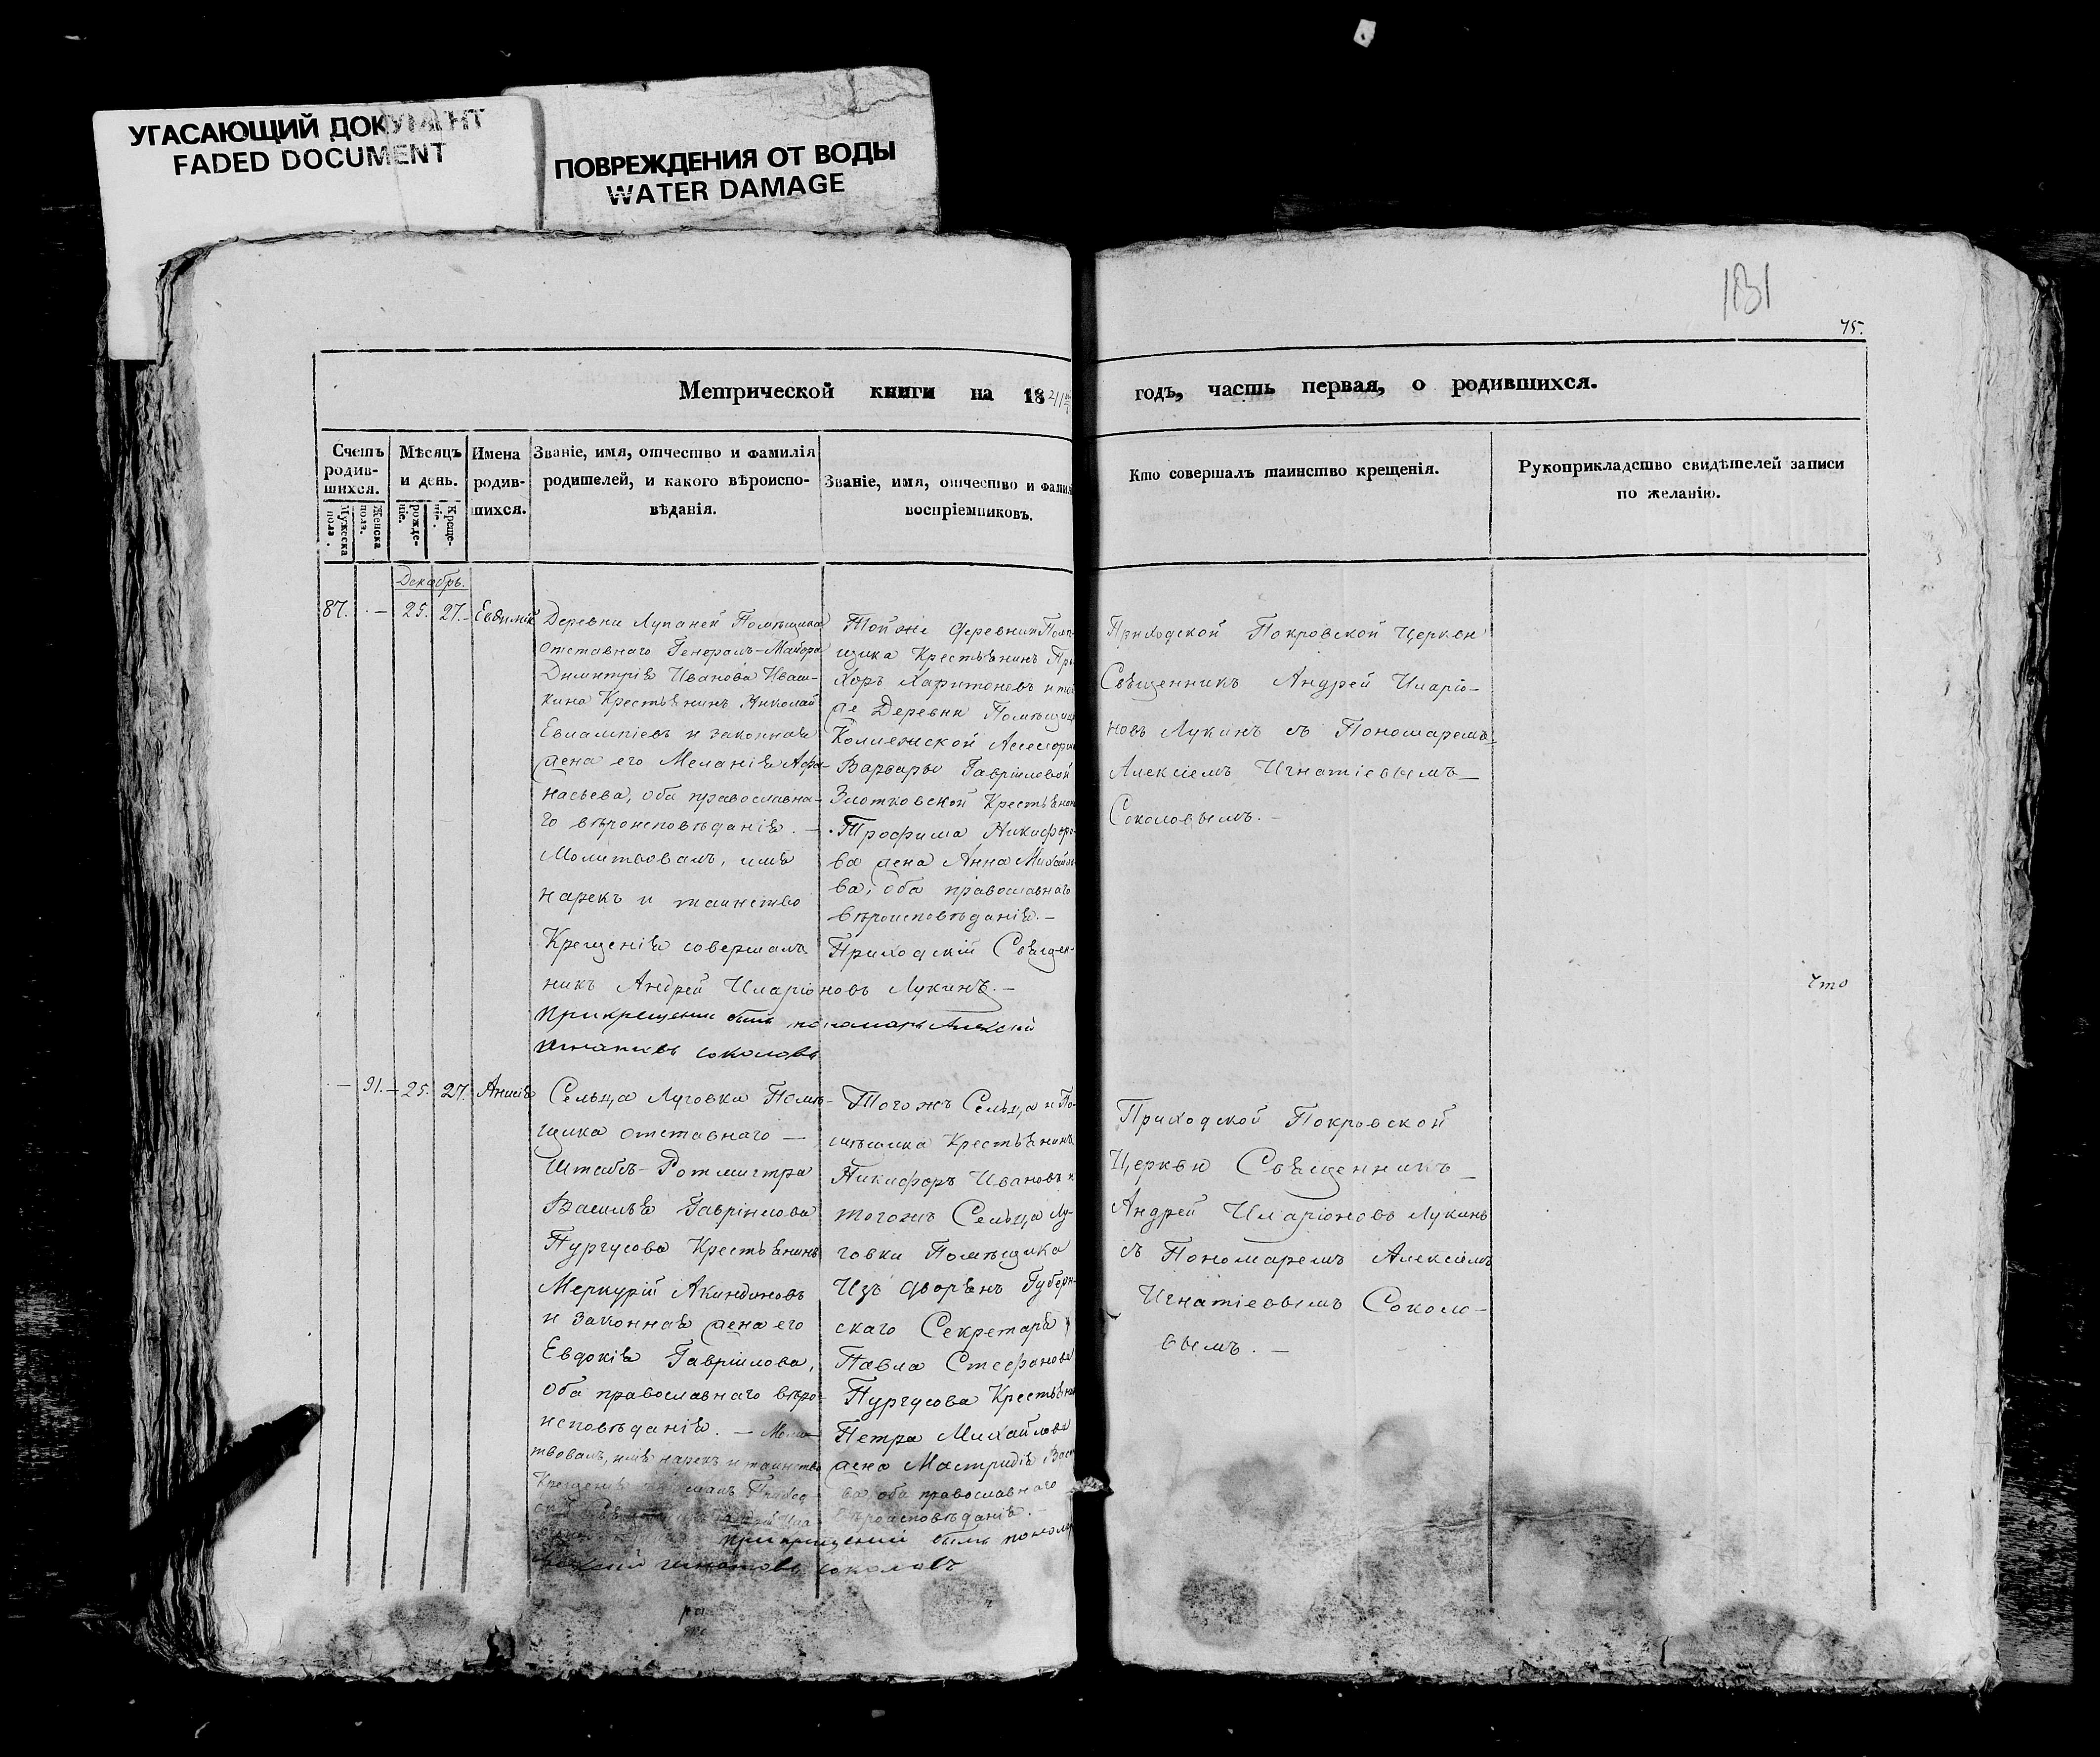 УГАСАЮЩИЙ ДОКУМЕНТ
FADED DOCUMENT
ПОВРЕЖДЕНИЯ ОТ ВОДЫ
WATER DAMAGE
131
75.
Метрической книги на 18
годъ, часть первая, о родившихся.
Счетъ родив-шихся.
Мужеска пола.
Женска пола.
Мѣсяцъ и день.
рожде-ніе.
Креще-ніе.
Имена родив-шихся.
Званіе, имя, отчество и фамилія
родителей, и какого вѣроиспо-
вѣданія.
Званіе, имя, отчество и фамил
воспріемниковъ.
Кто совершалъ таинство крещенія.
Рукоприкладство свидѣтелей записи
по желанію.
Декабрь.
87. — 25. 27. Евѳимій
Деревни Лупаней Помѣщика
отставнаго Генералъ-Маіора
Димитрія Иванова Иваш-
кина Крестьянинъ Николай
Евлампіевъ и законная
жена его Меланія Афа-
насьева, оба православна-
го вѣроисповѣданія. —
Молитвовалъ, имя
нарекъ и таинство
Крещенія совершалъ
Приходскій Священ-
никъ Андрей Иларіоновъ Лукинъ. —
При крещении былъ пономарь Алексѣй
Игнатиевъ Соколовъ
Той же деревни Помѣ-
щика Крестьянинъ Про
хоръ Харитоновъ и той
же Деревни Помѣщицы
Колежской Асессорши
Варвары Гавріиловой
Злотковской Крестьянина
Трофима Никифоро-
ва жена Анна Михайло
ва, оба православнаго
вѣроисповѣданія. —
Приходской Покровской Церкви
Священникъ Андрей Иларіо-
новъ Лукинъ съ Пономаремъ
Алексіемъ Игнатіевымъ
Соколовымъ. —
Что
— 91. — 25. 27. Анисія
Сельца Луговки Помѣ-
щика отставнаго —
Штабъ-Ротмистра
Василья Гавріилова
Пургусова Крестьянинъ
Меркурій Акиндиновъ
и законная жена его
Евдокія Гавріилова,
оба православнаго вѣро-
исповѣданія. — Моли-
твовалъ, имя нарекъ и таинство
Крещенія Приход-
при крещении былъ пономарь
Игнатовъ Соколовъ
Тогожъ Сельца и По-
мѣщика Крестьянинъ
Никифоръ Ивановъ и
тогожъ Сельца Лу-
говки Помѣщика
Изъ дворянъ Губерн-
скаго Секретаря
Павла Стефанова
Пургусова Крестьянина
Петра Михайлова
жена Мастридія Васи
ва оба православнаго
вѣроисповѣданія. —
Приходской Покровской
Церкви Священникъ
Андрей Иларіоновъ Лукинъ
съ Пономаремъ Алексіемъ
Игнатіевымъ Соколо-
вымъ. —